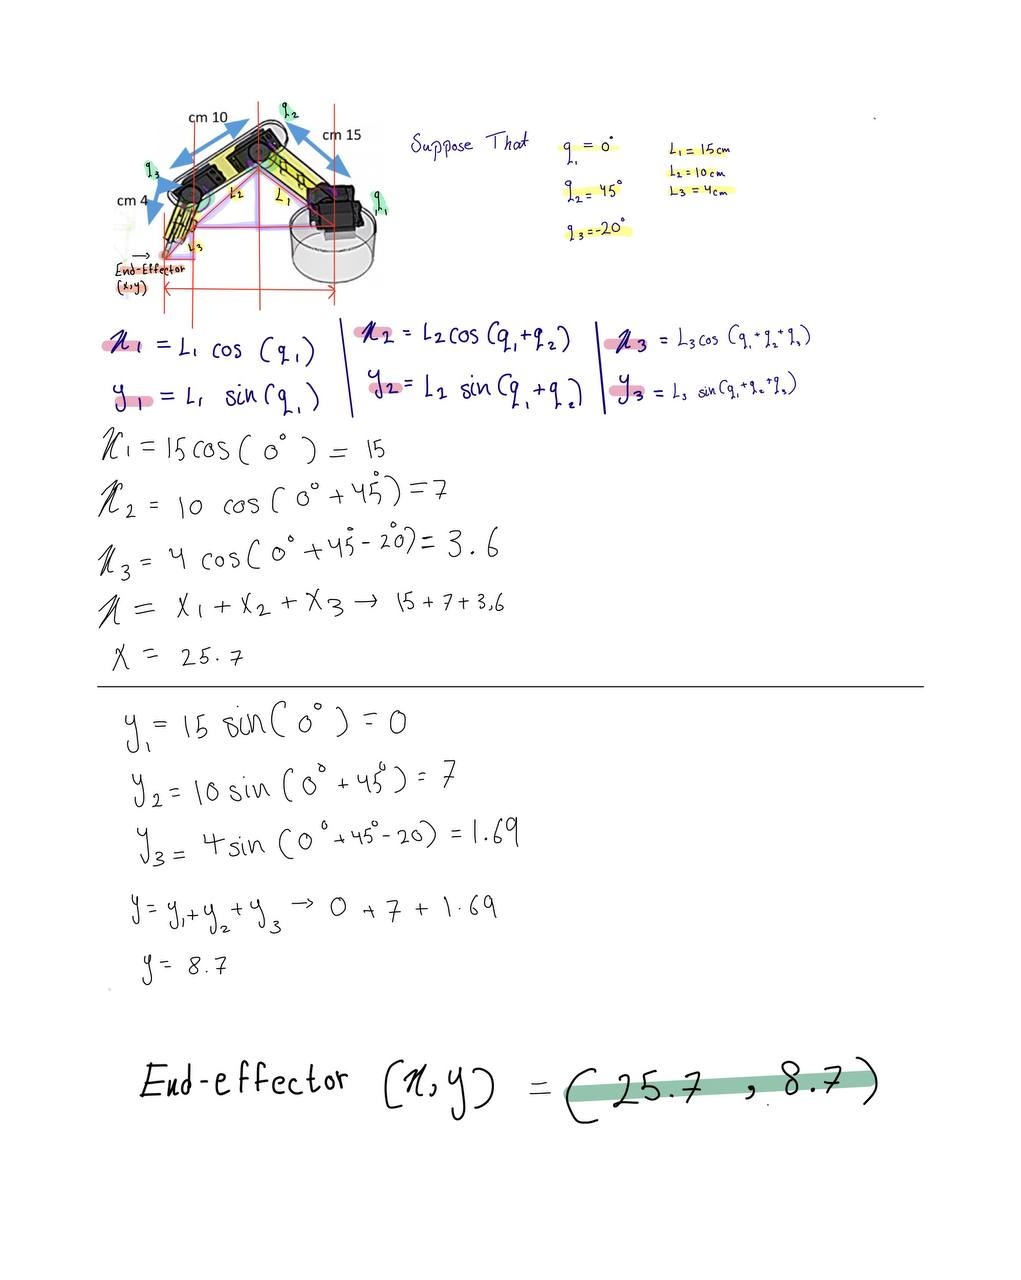 cm 10
q₂
cm 15
q₃
cm 4
L₂
L₁
q₁
L₃
End-Effector
(x,y)
Suppose That
q₁ = 0°
q₂ = 45°
q₃ = -20°
L₁ = 15 cm
L₂ = 10 cm
L₃ = 4 cm
x₁ = L₁ cos (q₁)
y₁ = L₁ sin (q₁)
x₂ = L₂ cos (q₁+q₂)
y₂ = L₂ sin (q₁+q₂)
x₃ = L₃ cos (q₁+q₂+q₃)
y₃ = L₃ sin (q₁+q₂+q₃)
x₁ = 15 cos ( 0° ) = 15
x₂ = 10 cos ( 0° + 45° ) = 7
x₃ = 4 cos ( 0° + 45° - 20° ) = 3.6
x = x₁ + x₂ + x₃ → 15 + 7 + 3,6
x = 25.7
y₁ = 15 sin ( 0° ) = 0
y₂ = 10 sin ( 0° + 45° ) = 7
y₃ = 4 sin ( 0° + 45° - 20 ) = 1.69
y = y₁ + y₂ + y₃ → 0 + 7 + 1.69
y = 8.7
End-effector (x,y) = ( 25.7 , 8.7 )